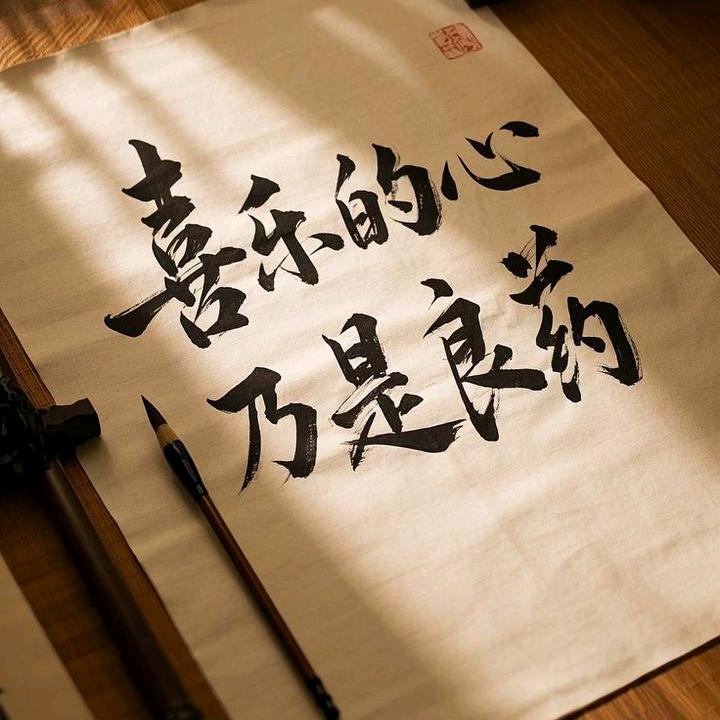 喜乐的心
乃是良药